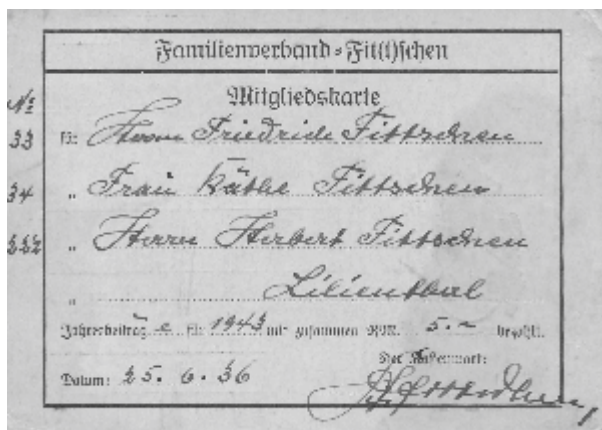 Familienverband-Fit(t)schen
Mitgliedskarte
№
33 für Herrn Friedrich Fittschen
34 „ Frau Käthe Fittschen
222 „ Herrn Herbert Fittschen
„ Lilienthal
Jahresbeitrag e für 1943 mit zusammen RM. 5.- bezahlt.
Der Kassenwart:
Datum: 25. 6. 36